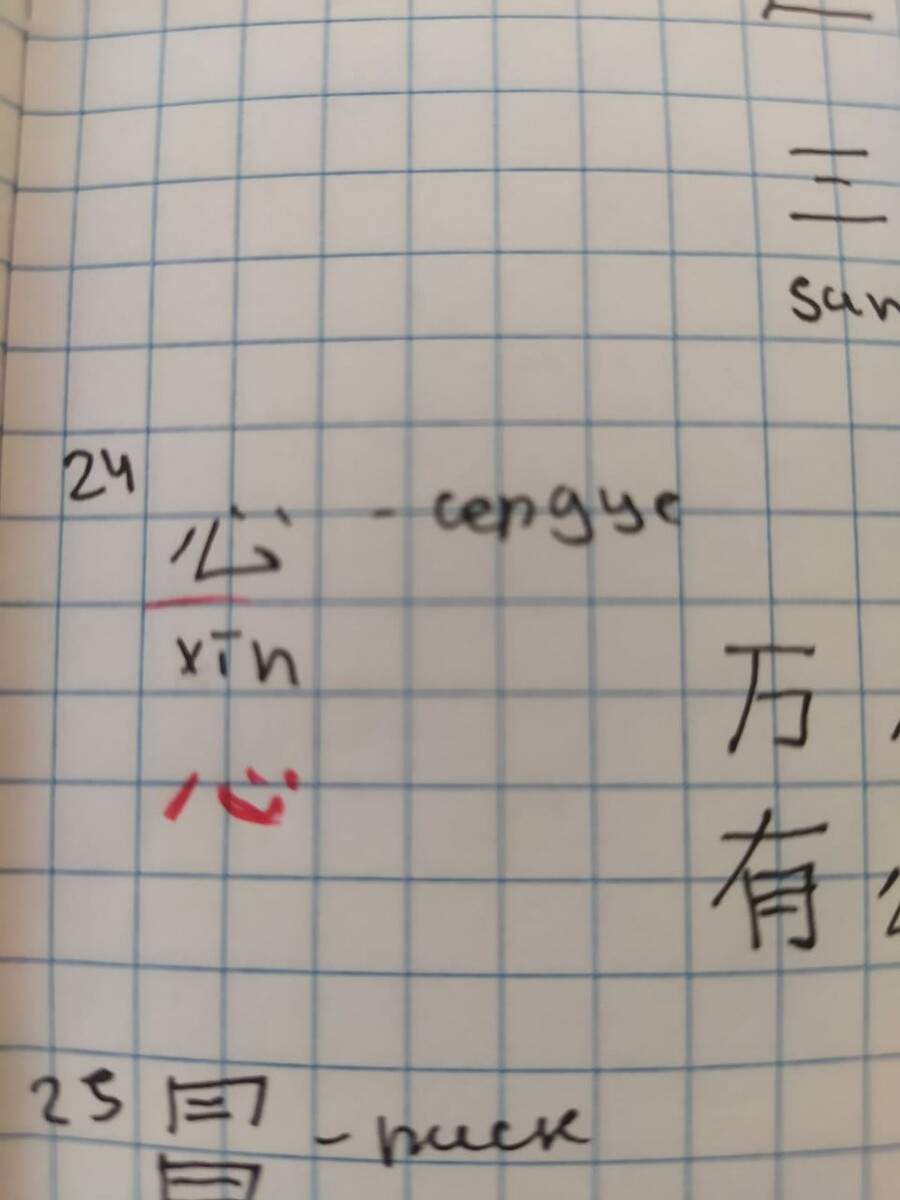 三
san
24 心 - сердце
xīn
万
心
有
25